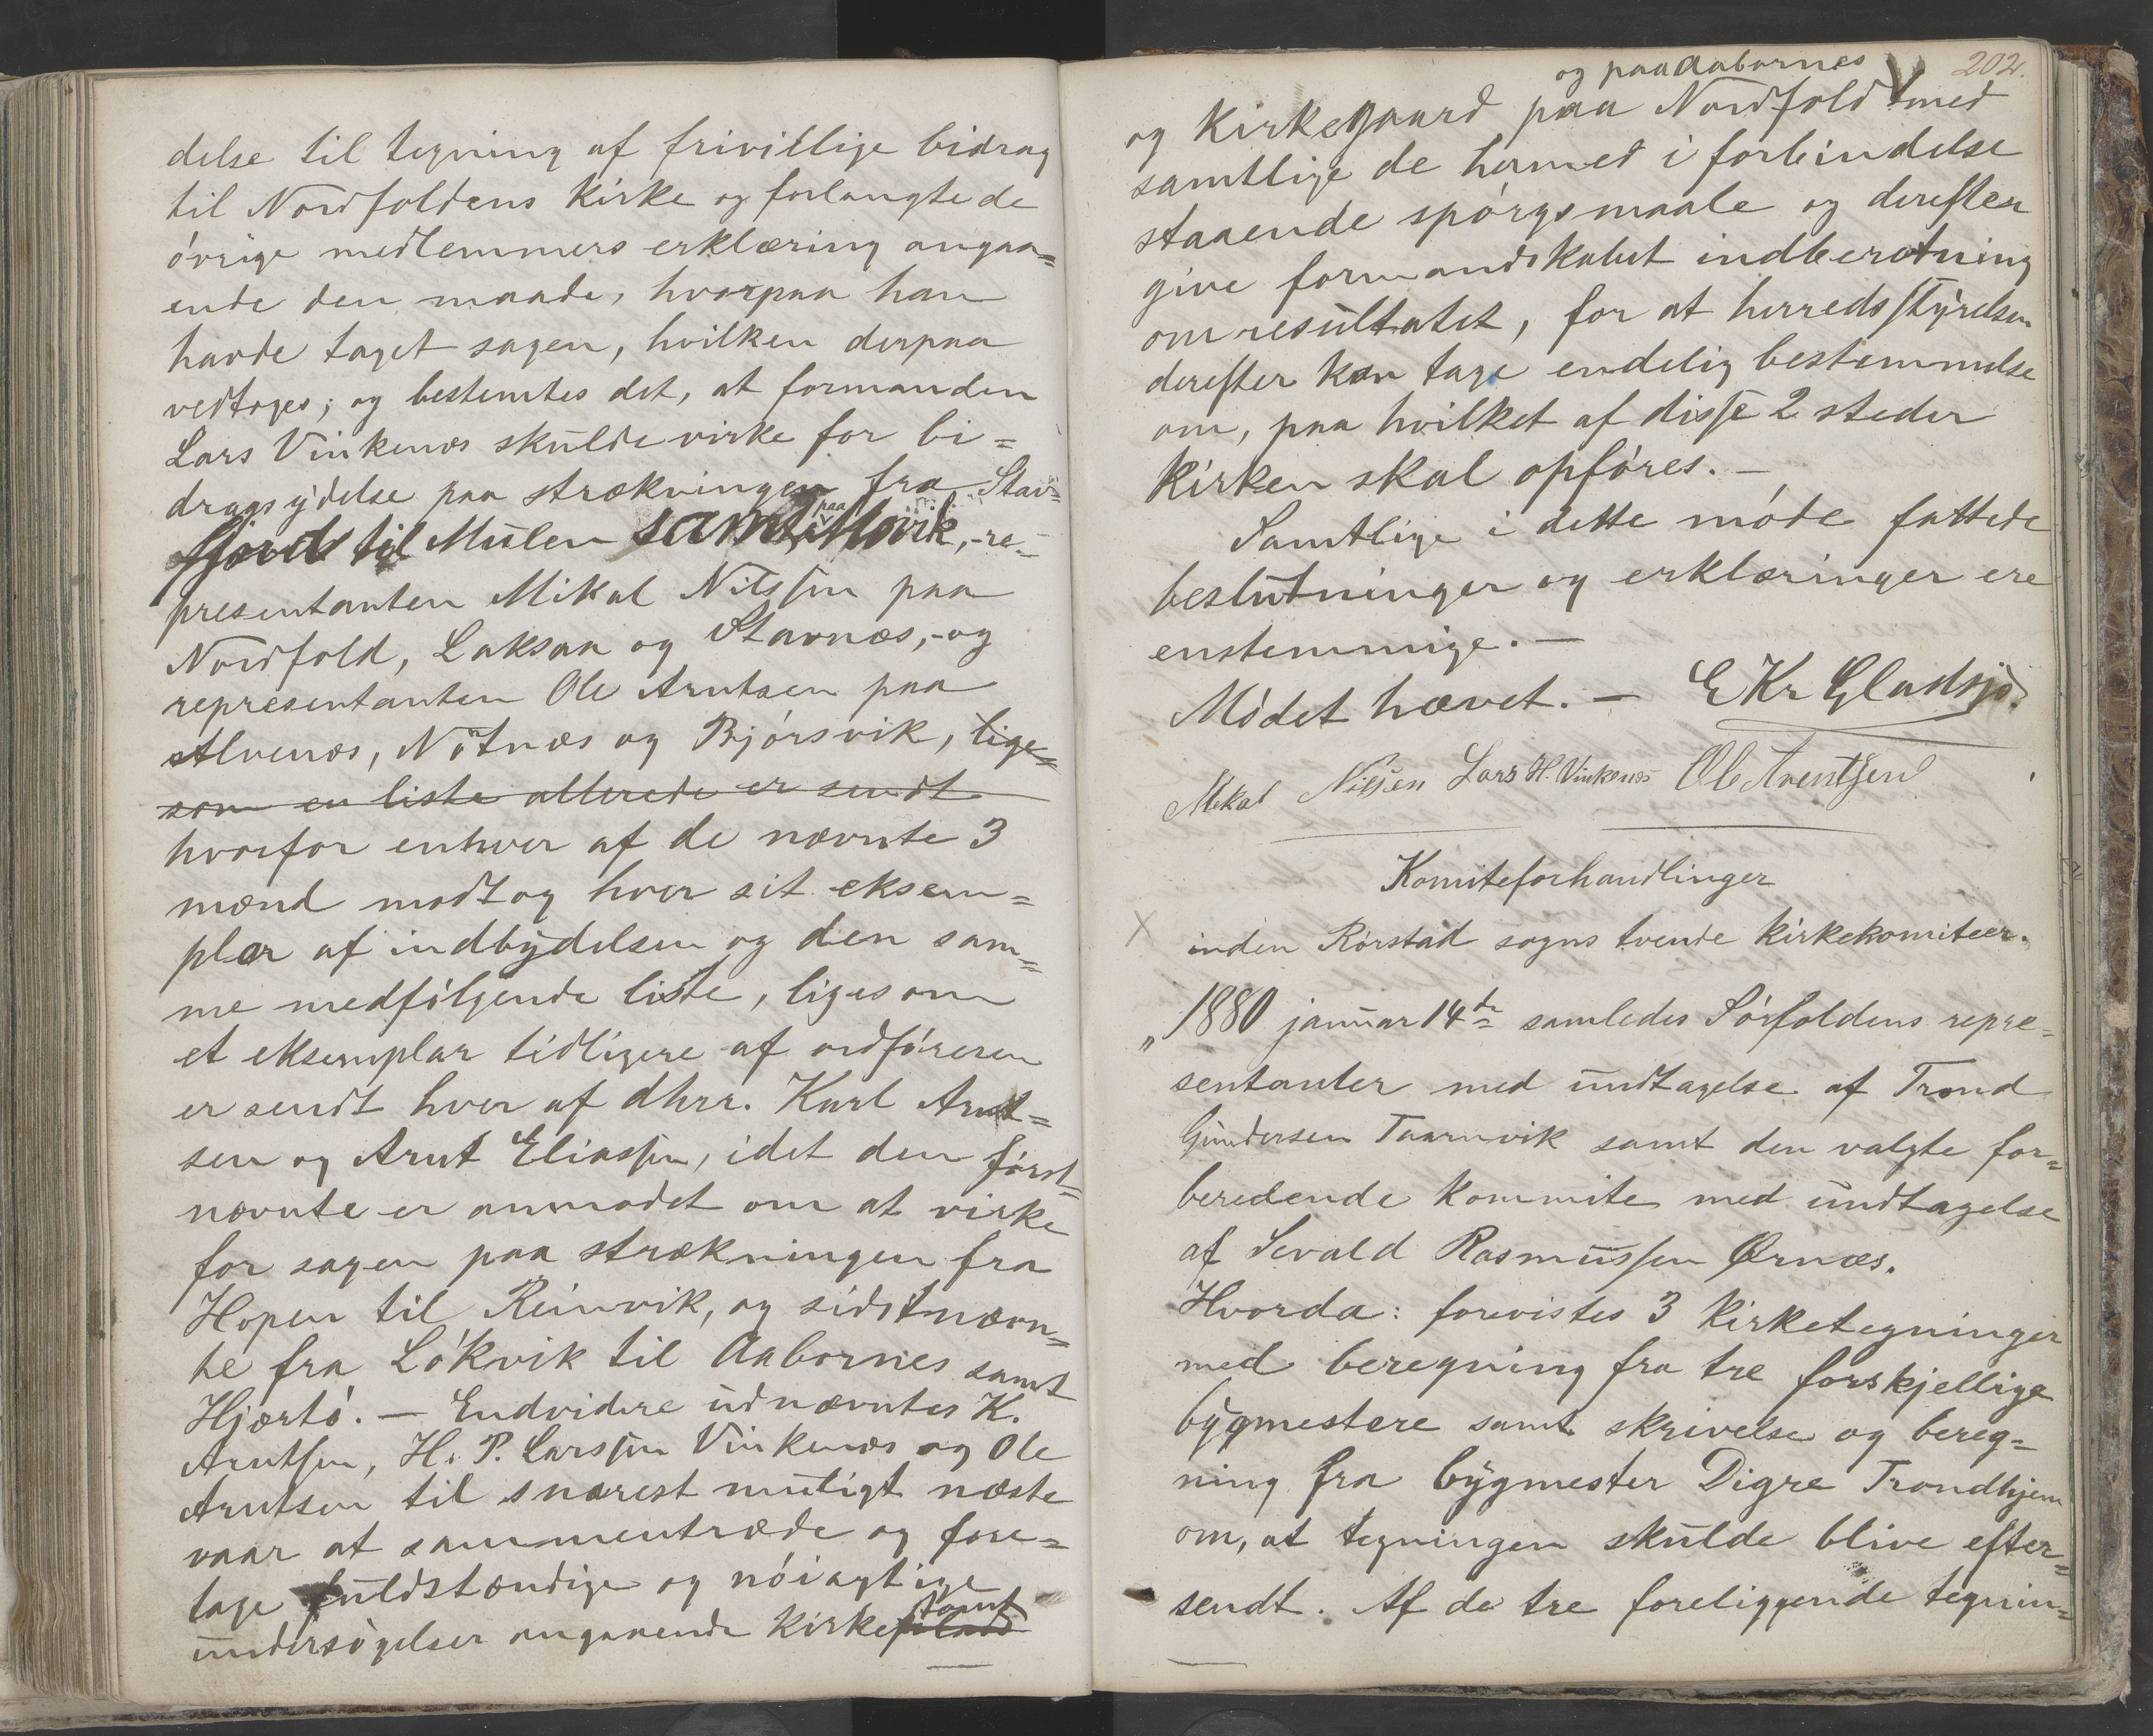 delse til tegning af frivillige bidrag
til Nordfoldens kirke og forlangte de
óvrige medlemmers erklæring angaa=
ende den maade, hvorpaa han
havde taget sagen, hvilken derpaa
vedtoges; og bestemtes det, at formanden
Lars Vinkenæs skulde virke for bi=
dragsydelse paa strækningen fra Stav=
fjord til Mulen samt paa Movik, re=
presentanten Mikal Nilssen paa
Nordfold, Laksaa og Stavnæs, og
representanten Ole Arntsen paa
Alvenæs, Nótnæs og Bjórsvik, lige=
som en liste allerede er sendt
hvorfor enhver af de nævnte 3
mænd modtog hver sit eksem=
plar af indbydelsen og den sam=
me medfólgende liste, ligesom
et eksemplar tidligere af ordfóreren
er sendt hver af dhrr. Karl Arnt=
sen og Arnt Eliassen, idet den fórst=
nævnte er anmodet om at virke
for sagen paa strækningen fra
Hopen til Reinvik, og sidstnævn=
te fra Lókvik til Aabornes samt
Hjærtó. — Endvidere udnævntes K.
Arntsen, H. P. Larssen Vinkenæs og Ole
Arntsen til snarest muligt næste
vaar at sammentræde og fore=
tage fuldstændige og nóiagtige
undersógelser angaaende kirketomt
202.
og paa Aabornes
og kirkegaard paa Nordfold med
samtlige de hermed i forbindelse
staaende spórgsmaale og derefter
give formandskabet indberetning
om resultatet, for at herredsstyrelsen
derefter kan tage endelig bestemmelse
om, paa hvilket af disse 2 steder
kirken skal opfóres. —
Samtlige i dette móde fattede
beslutninger og erklæringer ere
enstemmige. —
Módet hævet. — E Kr Gladsjó.
Mikal Nilsen Lars H. Vinkenæs Ole Arentsen
Komiteforhandlinger
X inden Rórstad sogns tvende kirkekomiteer.
„1880 januar 14de samledes Sórfoldens repre=
sentanter med undtagelse af Trond
Gundersen Taarnvik samt den valgte for=
beredende kommite med undtagelse
af Sevald Rasmussen Ørnæs.
Hvorda: forevistes 3 kirketegninger
med beregning fra tre forskjellige
bygmestere samt skrivelse og bereg=
ning fra bygmester Digre Trondhjem
om, at tegningen skulde blive efter=
sendt. Af de tre foreliggende tegnin=